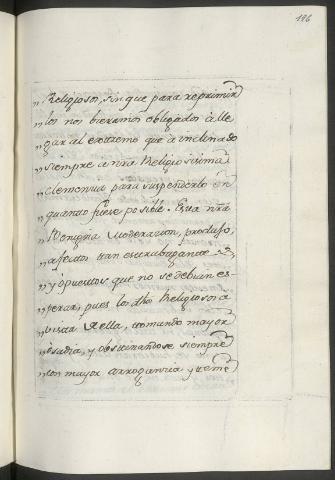 186
„ Religiosos, sin que para reprimir
„ los nos bieramos obligados à lle
„ gar al extremo que à inclinado
„ siempre a nrã Religiosisima
„ clemencia para suspenderlo en
„ quanto fuese posible. Esta nrã
„ Benigna Moderacion, produjo,
„ afectos tan extrabagantes
„ y opuestos que no se debian es
„ perar, pues los dhõs Religiosos a
„ vista de ella, tomando mayor
„ osadia, y obstinandose siempre
„ con mayor arrogancia, y teme